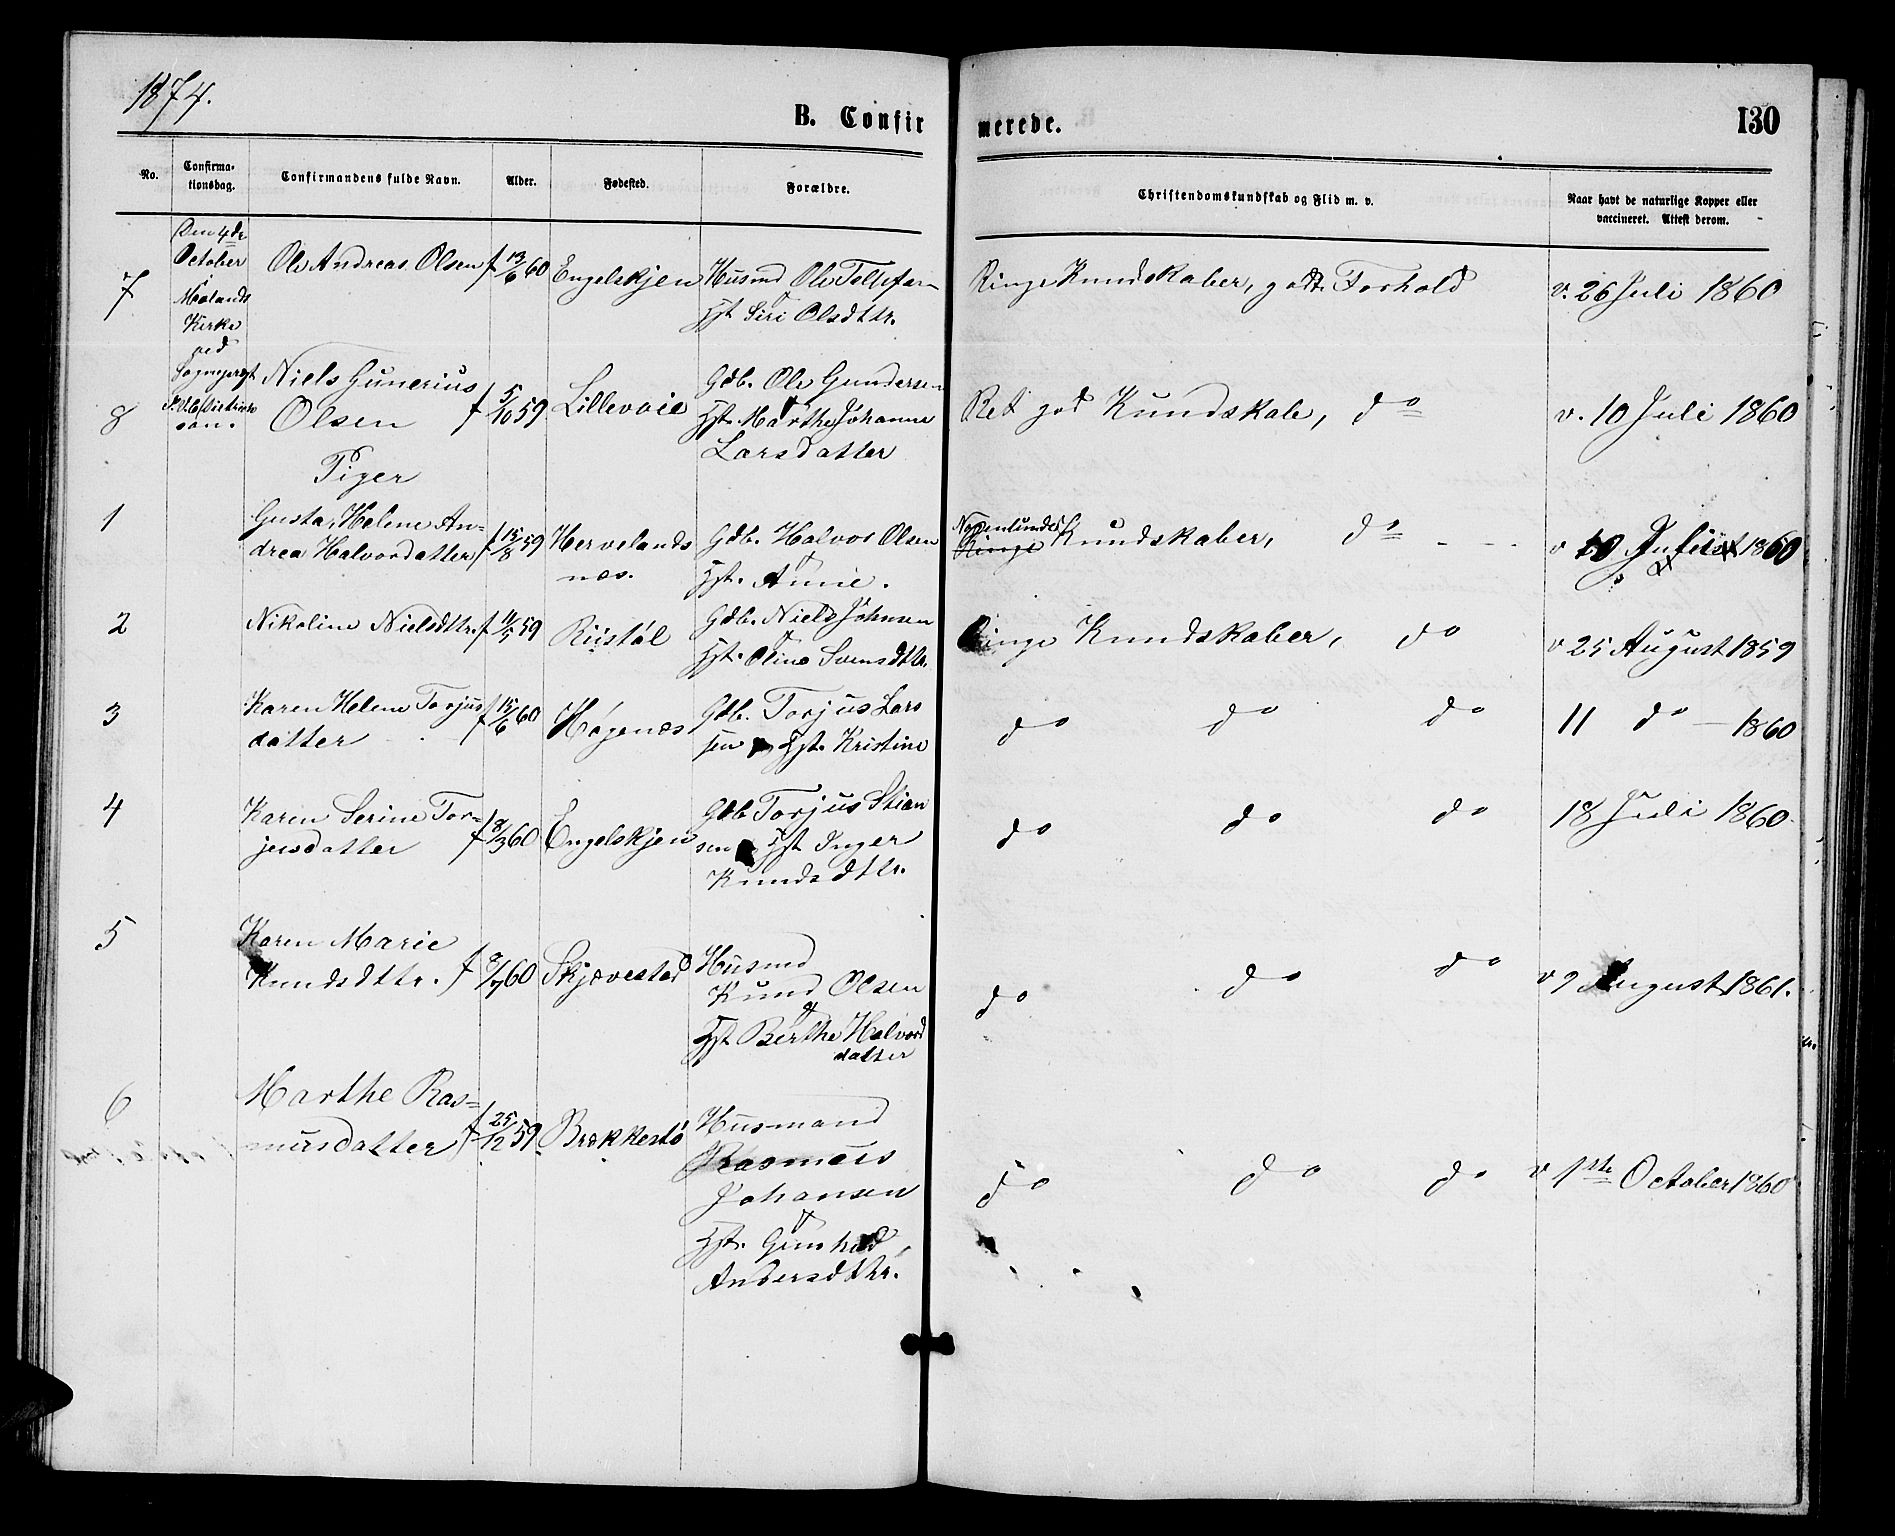 1874.
B. Confirmerede.
130
No.
Confirmationsdag.
Confirmandens fulde Navn.
Alder.
Fødested.
Forældre.
Christendomskundskab og Flid m. v.
Naar havt de naturlige Kopper eller vaccineret. Attest derom.
Den 4de
October
i
Kirke
ved
Sognepræst
7
Ole Andreas Olsen
f 13/6 60
Engelskjen
Husmd Ole
Hst. Siri Olsdttr.
Ringe Kundskaber, godt Forhold
v. 26 Juli 1860
8
Niels Gunerius
Olsen
f 5/10 59
Lillevoie
Gdb. Ole Gundersen
Hst. Marthe Johanne
Larsdatter
Ret god Kundskab, do
v. 10 Juli 1860
Piger
1
Gusta Helene An=
drea Halvorsdatter
f 15/8 59
Hervelands
nes.
Gdb. Halvor Olsen
Hst. Annie.
Nogenlunde
Ringe Kundskaber, do
v 10 1860
2
Nikoline Nielsdttr.
f 11/5 59
Riistøl
Gdb. Niels Johnsen
Hst. Oline Svensdttr.
Ringe Kundskaber, do
v 25 August 1859
3
Karen Helene Torjus
datter
f 15/6 60
Høgenes
Gdb. Torjus Lars
sen og Hst. Kristine
do do do
11 do - 1860
4
Karen Serine Tor=
jusdatter
f 18/3 60
Engelskjen
Gdb Torjus Stian
sen Hst Inger
Knudsdttr.
do do do
18 Juli 1860
5
Karen Marie
Knudsdttr.
f 8/7 60
Skjævestad
Husmd
Knud Olsen
Hst Berthe Halvord
datter
do do do
v 9 August 1861.
6
Marthe Ras=
musdatter
f 25/12 59
Brækkestø
Husmand
Rasmus
Johansen
Hst. Gunhild
Andersdttr.
do do do
v 1ste October 1860